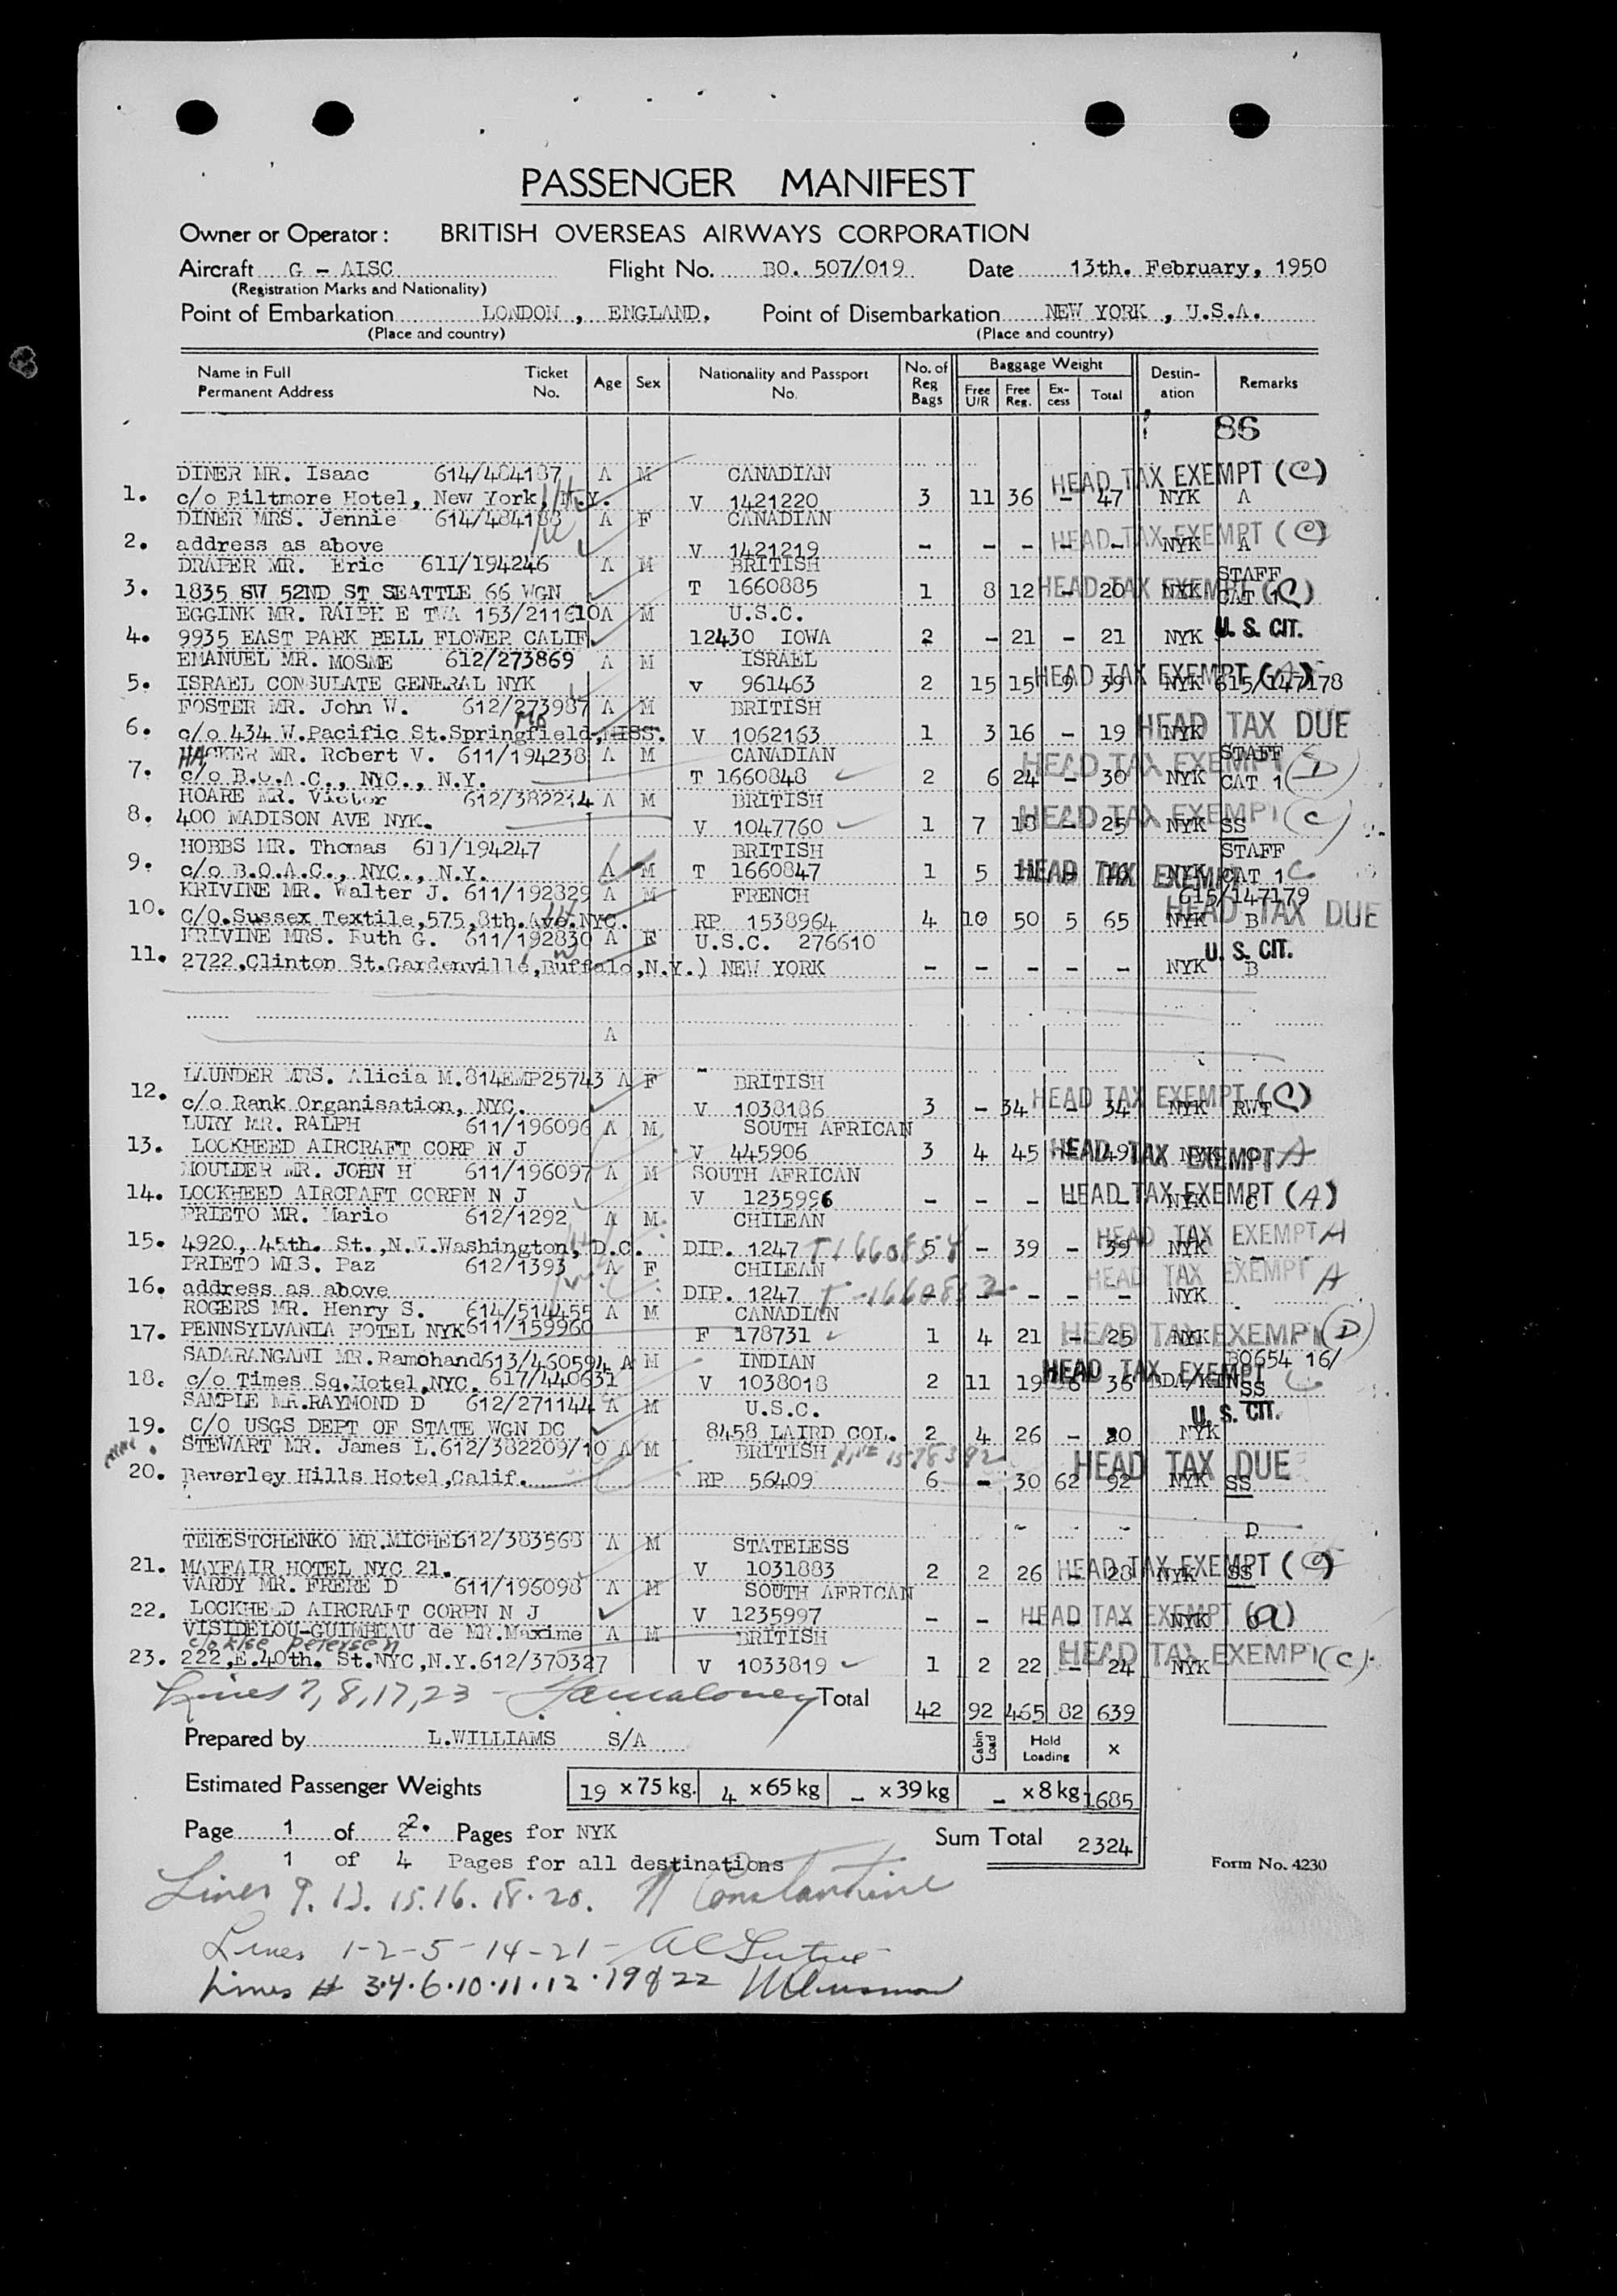 PASSENGER MANIFEST
Owner or Operator: BRITISH OVERSEAS AIRWAYS CORPORATION
Aircraft G - ALSC Flight No. BO. 507/019 Date 13th. February, 1950
(Registration Marks and Nationality)
Point of Embarkation LONDON , ENGLAND. Point of Disembarkation NEW YORK , U.S.A.
(Place and country) (Place and country)
Name in Full Permanent Address Ticket No. Age Sex Nationality and Passport No. No. of Reg Bags Baggage Weight Free U/R Free Reg. Ex-cess Total Destin-ation Remarks
86
DINER MR. Isaac 614/484187 A M CANADIAN HEAD TAX EXEMPT (C)
1. c/o Biltmore Hotel, New York, N.Y. V 1421220 3 11 36 - 47 NYK A
DINER MRS. Jennie 614/484188 A F CANADIAN HEAD TAX EXEMPT (C)
2. address as above V 1421219 - - - - - NYK A
DRAPER MR. Eric 611/194246 A M BRITISH STAFF
3. 1835 SW 52ND ST SEATTLE 66 WGN T 1660885 1 8 12 - 20 HEAD TAX EXEMPT (C) NYK CAT 1
EGGINK MR. RALPH E TWA 153/211610 A M U.S.C. U. S. CIT.
4. 9935 EAST PARK BELL FLOWER CALIF. 12430 IOWA 2 - 21 - 21 NYK
EMANUEL MR. MOSME 612/273869 A M ISRAEL HEAD TAX EXEMPT (A)
5. ISRAEL CONSULATE GENERAL NYK V 961463 2 15 15 9 39 NYK 615/147178
FOSTER MR. John W. 612/273987 A M BRITISH HEAD TAX DUE
6. c/o 434 W.Pacific St.Springfield, MISS. MO V 1062163 1 3 16 - 19 NYK
HACKER MR. Robert V. 611/194238 A M CANADIAN HEAD TAX EXEMPT (D) STAFF
7. c/o B.O.A.C., NYC., N.Y. T 1660848 2 6 24 - 30 NYK CAT 1
HOARE MR. Victor 612/382214 A M BRITISH HEAD TAX EXEMPT (C)
8. 400 MADISON AVE NYK. V 1047760 1 7 18 - 25 NYK SS
HOBBS MR. Thomas 611/194247 BRITISH STAFF
9. c/o B.O.A.C., NYC., N.Y. A M T 1660847 1 5 11 - 16 HEAD TAX EXEMPT NYK CAT 1 C
KRIVINE MR. Walter J. 611/192829 A M FRENCH 615/147179
10. C/O.Sussex Textile,575,8th.Ave.NYC. RP 1538964 4 10 50 5 65 NYK B HEAD TAX DUE
KRIVINE MRS. Ruth G. 611/192830 A F U.S.C. 276610 U. S. CIT.
11. 2722,Clinton St.Gardenville,Buffalo,N.Y.) NEW YORK - - - - - NYK B
A
LAUNDER MRS. Alicia M. 814EMP25743 A F BRITISH HEAD TAX EXEMPT (C)
12. c/o Rank Organisation, NYC. V 1038186 3 - 34 - 34 NYK RWT
LURY MR. RALPH 611/196096 A M SOUTH AFRICAN
13. LOCKHEED AIRCRAFT CORP N J V 445906 3 4 45 - 49 HEAD TAX EXEMPT A NYK C
MOULDER MR. JOHN H 611/196097 A M SOUTH AFRICAN
14. LOCKHEED AIRCRAFT CORPN N J V 1235996 - - - - - HEAD TAX EXEMPT (A) NYK C
PRIETO MR. Mario 612/1292 A M CHILEAN HEAD TAX EXEMPT A
15. 4920, 45th. St.,N.W.Washington, D.C. DIP. 1247 5 - 39 - 39 NYK
PRIETO MRS. Paz 612/1393 A F CHILEAN HEAD TAX EXEMPT A
16. address as above DIP. 1247 - - - - - NYK
ROGERS MR. Henry S. 614/514455 A M CANADIAN
17. PENNSYLVANIA HOTEL NYK 611/159960 F 178731 1 4 21 - 25 HEAD TAX EXEMPT (D) NYK
SADARANGANI MR.Ramchand 613/460594 A M INDIAN HEAD TAX EXEMPT BO654 16/
18. c/o Times Sq.Hotel,NYC. 617/440631 V 1038018 2 11 19 6 36 BDA/KIN SS C
SAMPLE MR.RAYMOND D 612/271144 A M U.S.C. U. S. CIT.
19. C/O USGS DEPT OF STATE WGN DC 8458 LAIRD COL. 2 4 26 - 30 NYK
STEWART MR. James L. 612/382209/10 A M BRITISH HEAD TAX DUE
20. Beverley Hills Hotel,Calif. RP 56409 6 - 30 62 92 NYK SS
D
TERESTCHENKO MR.MICHEL 612/383568 A M STATELESS
21. MAYFAIR HOTEL NYC 21. V 1031883 2 2 26 - 28 HEAD TAX EXEMPT (C) NYK SS
VARDY MR. FRERE D 611/196098 A M SOUTH AFRICAN
22. LOCKHEED AIRCRAFT CORPN N J V 1235997 - - - - - HEAD TAX EXEMPT (a) NYK C
VISIDELOU-GUIMBEAU de MR.Maxime A M BRITISH
c/o Else Petersen
23. 222,E.40th. St.NYC,N.Y. 612/370327 V 1033819 1 2 22 - 24 HEAD TAX EXEMPT (C) NYK
Lines 7, 8, 17, 23 - Total 42 92 465 82 639
Prepared by L.WILLIAMS S/A Cabin Load Hold Loading x
Estimated Passenger Weights 19 x 75 kg. 4 x 65 kg - x 39 kg - x 8 kg 1685
Page 1 of 2. Pages for NYK Sum Total 2324
1 of 4 Pages for all destinations Form No. 4230
Lines 9. 13. 15. 16. 18. 20. Constantine
Lines 1-2-5-14-21-
Lines # 3.4.6.10.11.12.19 & 22